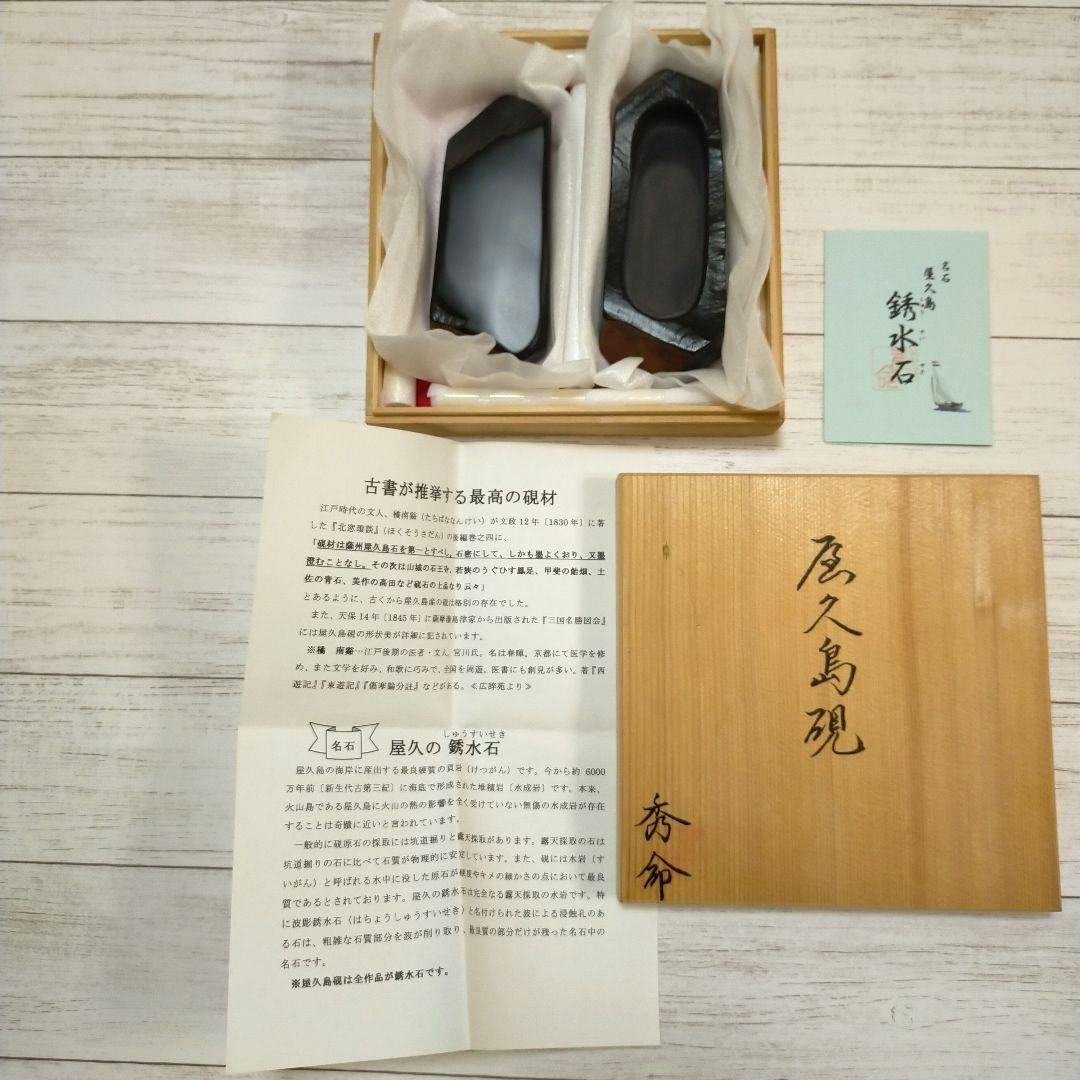 名石
屋久島
銹水石
古書が推挙する最高の硯材
江戸時代の文人、橘南谿（たちばななんけい）が文政12年〔1830年〕に著
した『北窓瑣談』（ほくそうさだん）の後編巻之四に、
「硯材は薩州屋久島石を第一とすべし。石密にして、しかも墨よくおり、又墨
澄むことなし。その次は山城の石王寺、若狭のうぐひす鳳足、甲斐の飴畑、土
佐の青石、美作の高田など硯石の上品なり云々」
とあるように、古くから屋久島産の硯は格別の存在でした。
また、天保14年〔1845年〕に薩摩藩島津家から出版された『三国名勝図会』
には屋久島硯の形状美が詳細に記されています。
※橘　南谿…江戸後期の医者・文人 宮川氏。名は春暉。京都にて医学を修
め、また文学を好み、和歌に巧みで、全国を周遊。医書にも創見が多い。著『西
遊記』『東遊記』『傷寒論分註』などがある。≪広辞苑より≫
名石
しゅうすいせき
屋久の 銹水石
屋久島の海岸に産出する最良硬質の頁岩（けつがん）です。今から約 6000
万年前〔新生代古第三紀〕に海底で形成された堆積岩〔水成岩〕です。本来、
火山島である屋久島に火山の熱の影響を全く受けていない無傷の水成岩が存在
することは奇蹟に近いと言われています。
一般的に硯原石の採取には坑道掘りと露天採取があります。露天採取の石は
坑道掘りの石に比べて石質が物理的に安定しています。また、硯には水岩（す
いがん）と呼ばれる水中に没した原石が硬度やキメの細かさの点において最良
質であるとされております。屋久の銹水石は完全なる露天採取の水岩です。特
に波彫銹水石（はちょうしゅうすいせき）と名付けられた波による浸蝕孔のあ
る石は、粗雑な石質部分を波が削り取り、最良質の部分だけが残った名石中の
名石です。
※屋久島硯は全作品が銹水石です。
屋久島硯
秀命